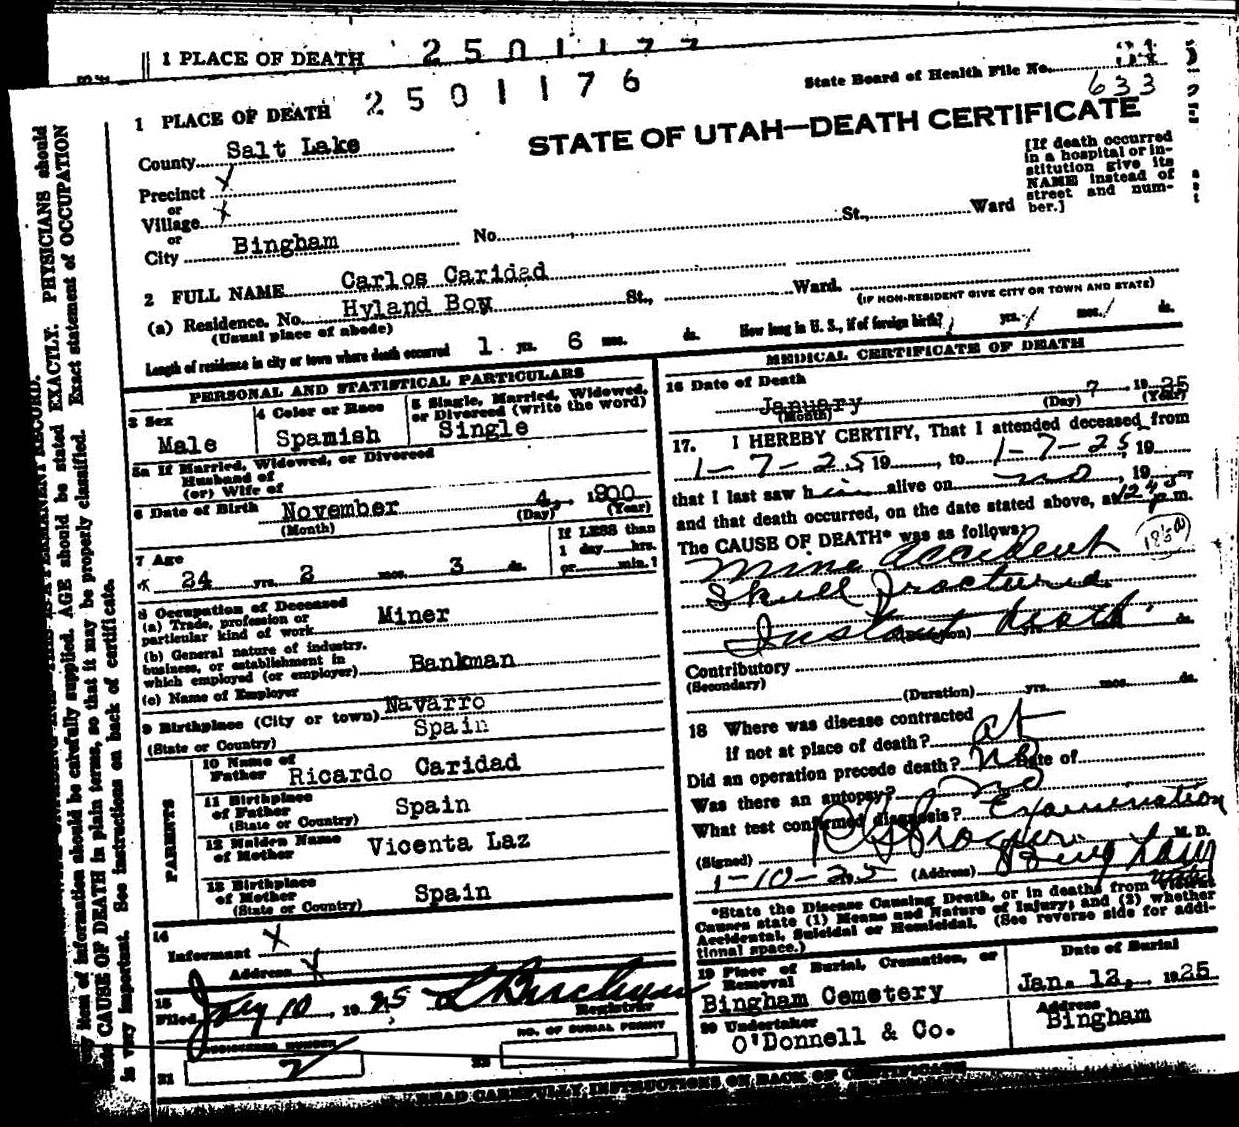 1 PLACE OF DEATH 2501177
1 PLACE OF DEATH 2501176
State Board of Health File No. 633
STATE OF UTAH—DEATH CERTIFICATE
County Salt Lake
Precinct X
or
Village X
or
City Bingham No. St., Ward
[If death occurred
in a hospital or in-
stitution give its
NAME instead of
street and num-
ber.]
2 FULL NAME Carlos Caridad
(a) Residence. No. Hyland Boy St., Ward.
(Usual place of abode)
(IF NON-RESIDENT GIVE CITY OR TOWN AND STATE)
Length of residence in city or town where death occurred 1 yrs. 6 mos. ds.
How long in U. S., if of foreign birth? / yrs. / mos. / ds.
PERSONAL AND STATISTICAL PARTICULARS
3 Sex
Male
4 Color or Race
Spamish
5 Single, Married, Widowed,
or Divorced (write the word)
Single
5a If Married, Widowed, or Divorced
Husband of
(or) Wife of
6 Date of Birth November 4, 1900
(Month) (Day) (Year)
7 Age
24 yrs. 2 mos. 3 ds.
If LESS than
1 day hrs.
or min.?
8 Occupation of Deceased
(a) Trade, profession or
particular kind of work Miner
(b) General nature of industry,
business, or establishment in
which employed (or employer) Bankman
(c) Name of Employer
9 Birthplace (City or town) Navarro
(State or Country) Spain
PARENTS
10 Name of
Father Ricardo Caridad
11 Birthplace
of Father Spain
(State or Country)
12 Maiden Name
of Mother Vicenta Laz
13 Birthplace
of Mother Spain
(State or Country)
14
Informant X
Address X
15
Filed Jany 10, 1925
Registrar
REGISTERED NUMBER
21 2
NO. OF BURIAL PERMIT
22
MEDICAL CERTIFICATE OF DEATH
16 Date of Death
January 7, 1925
(Month) (Day) (Year)
17. I HEREBY CERTIFY, That I attended deceased from
1-7-25 19, to 1-7-25, 19
that I last saw him alive on no, 19
and that death occurred, on the date stated above, at 1245 p.m.
The CAUSE OF DEATH* was as follows:
Mine accident
Skull fractured
Instant death
(Duration) yrs. ds.
Contributory
(Secondary)
(Duration) yrs. mos. ds.
18 Where was disease contracted
if not at place of death? at
Did an operation precede death? no Date of
Was there an autopsy? no
What test confirmed diagnosis? Examination
(Signed) M. D.
1-10-25 (Address) Bingham
Utah
*State the Disease Causing Death, or in deaths from Violent
Causes state (1) Means and Nature of Injury; and (2) whether
Accidental, Suicidal or Homicidal. (See reverse side for addi-
tional space.)
19 Place of Burial, Cremation, or
Removal
Bingham Cemetery
Date of Burial
Jan. 12, 1925
20 Undertaker
O'Donnell & Co.
Address
Bingham
READ CAREFULLY INSTRUCTIONS ON BACK OF CERTIFICATE
item of information should be carefully supplied. AGE should be stated EXACTLY. PHYSICIANS should
CAUSE OF DEATH in plain terms, so that it may be properly classified. Exact statement of OCCUPATION
is very important. See instructions on back of certificate.